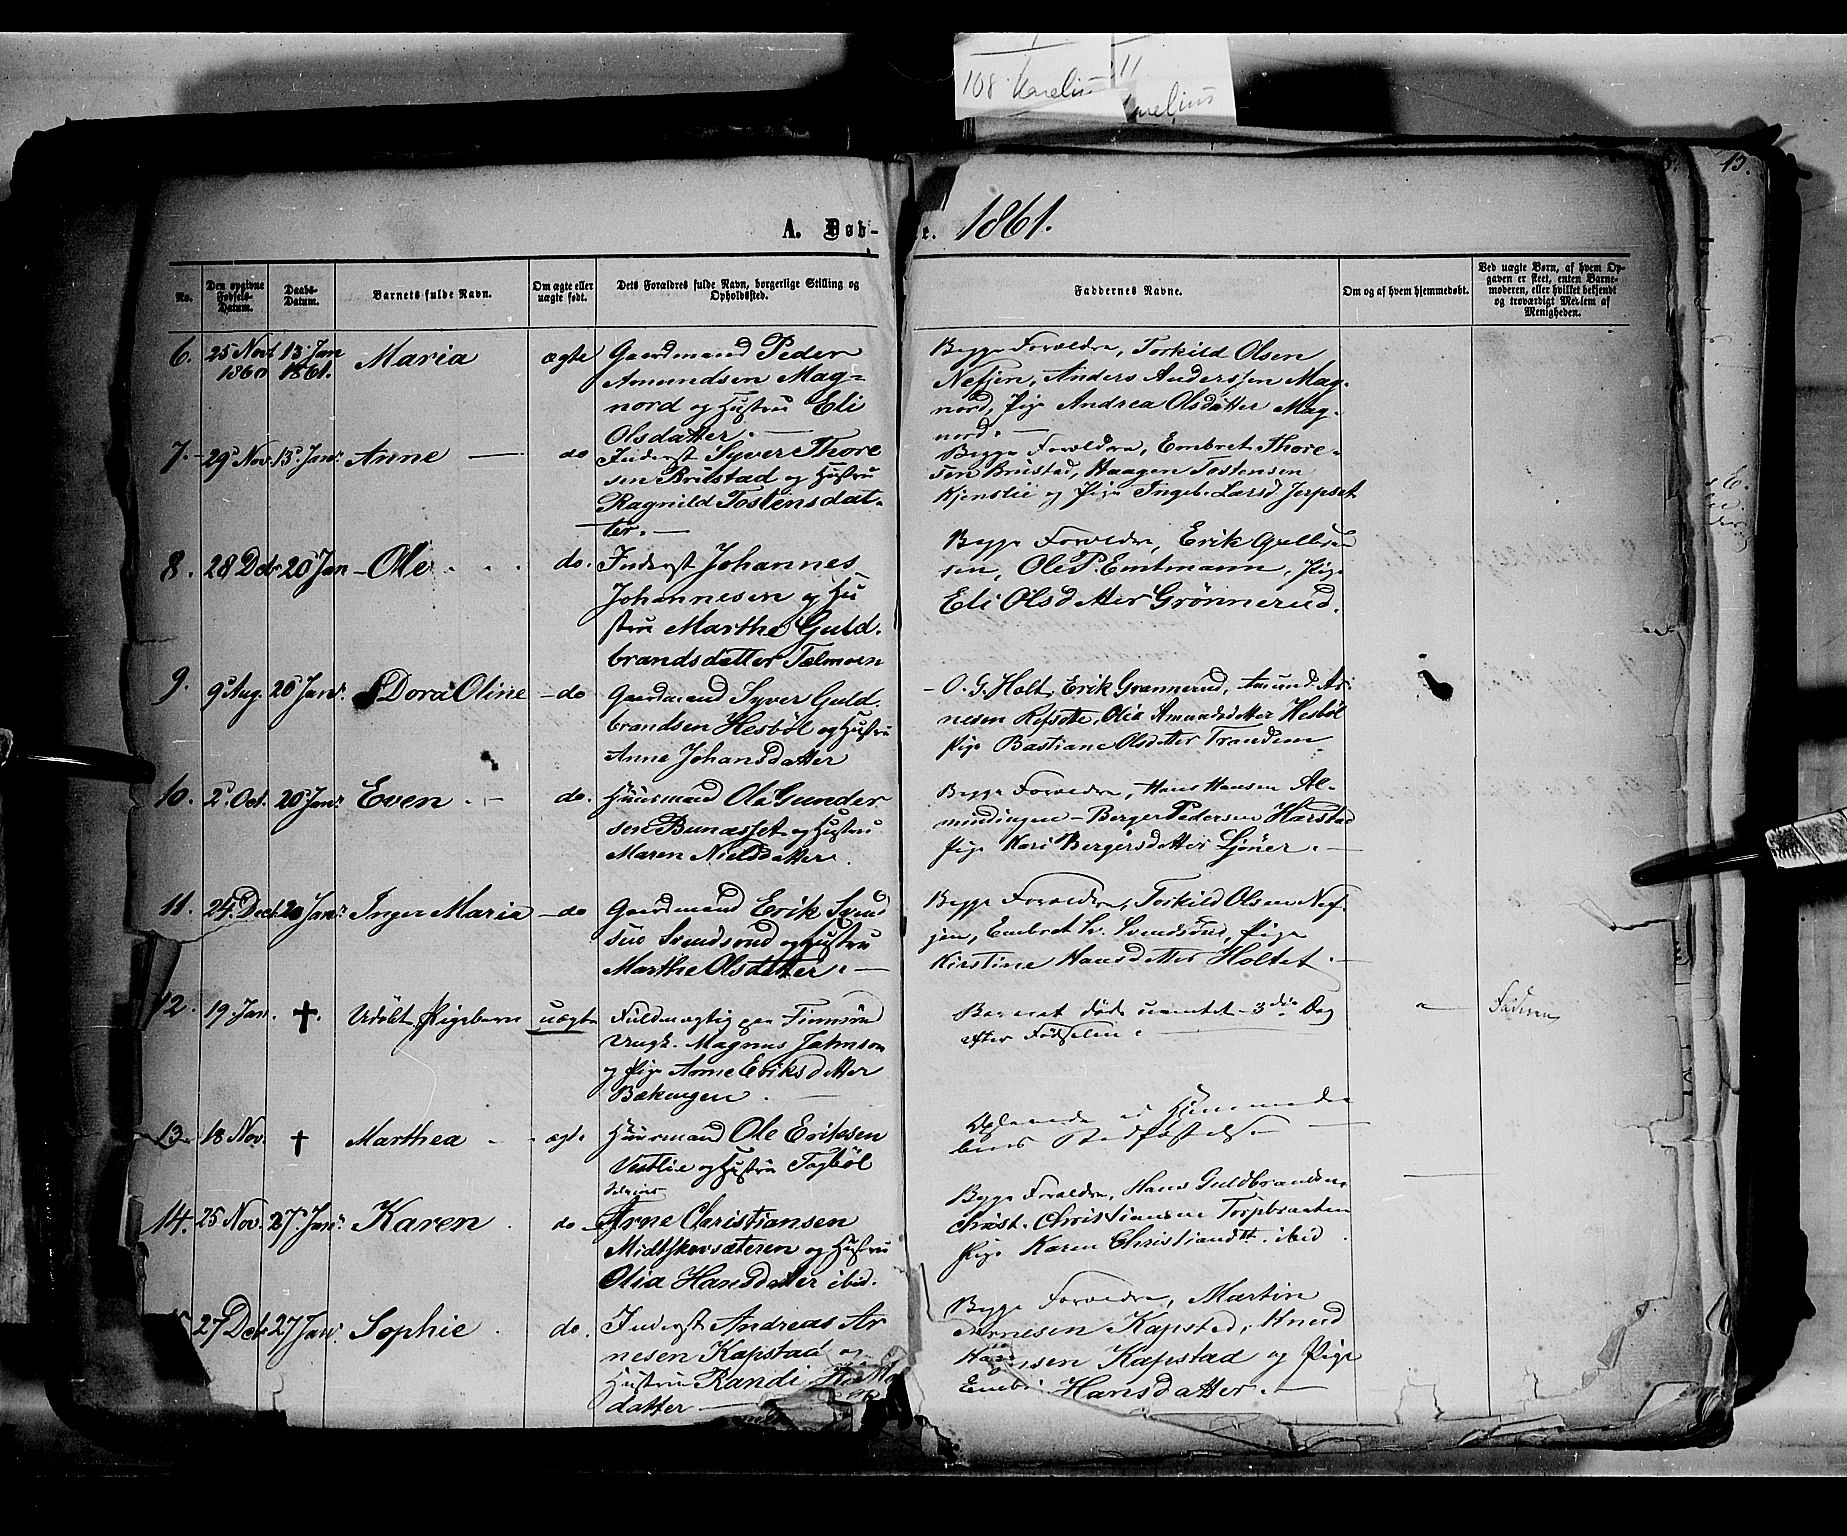 108 Karelius 11
Karelius
13.
A. Døb-
e. 1861.
No.
Den opgivne Fødsels-Datum.
Daabs-Datum.
Barnets fulde Navn.
Om ægte eller uægte født.
Dets Forældres fulde Navn, borgerlige Stilling og Opholdsted.
Faddernes Navne.
Om og af hvem hjemmedøbt.
Ved uægte Børn, af hvem Opgaven er skeet, enten Barnemoderen, eller hvilket bekjendt og troværdigt Medlem af Menigheden.
6. 25 Novb 13 Jan Maria ægte Gaardmand Peder
1860 1861.
Amundsen Mag-
nord og Hustru Eli
Olsdatter. —
Begge Forældre, Torkild Olsen
Nefjen, Anders Anderssen Mag-
nord, Pige Andrea Olsdatter Mag-
nord. —
7. 29 Nov. 13 Janr Anne — do Inderst Syver Thore
sen Brustad og Hustru
Ragnild Tostensdat-
ter. —
Begge Forældre, Embret Thore-
sen Brustad, Haagen Tostensen
Kjenslie og Pige Ingeb. Larsd Jerpset
8. 28 Decb 20 Jan Ole do. Inderst Johannes
Johannesen og Hu
stru Marthe Guld-
brandsdatter Tælmoen
Begge Forældre, Erik Gulbrand
sen, Ole P. Emtmann, Pige
Eli Olsdatter Grønnerud.
9. 9 Aug. 20 Janr. Dora Oline — do Gaardmand Syver Guld-
brandsen Hesbøl og Hustru
Anne Johansdatter
— O. G. Holt, Erik Grønnerud, Amund Ar-
nesen Refsæte, Olia Amundsdatter Hesbøl
Pige Bastiane Olsdatter Trandem
10. 2 Oct. 20 Janr Even do. Huusmand Ole Gunder
sen Bunæsset og Hustru
Maren Nielsdatter.
Begge Forældre, Hans Hansen Al-
mindingen — Berger Pedersen Harstad
Pige Kari Bergersdatter Ljøner. —
11. 24. Dec. 20 Janr. Inger Maria — do Gaardmand Erik Svend
sen Svendsrud og Hustru
Marthe Olsdatter. —
Begge Forældre, Torkild Olsen Nef-
jen, Embret Sv. Svendsrud, Pige
Kirstine Hansdatter Holtet. —
12. 19. Jan. †. Udøbt Pigebarn uægte Fuldmægtig paa
Magnus Jahnson
og Pige Anne Eriksdatter
Bækengen.
Barnet døde udøbt 3die Dag
efter Fødselen.
Faderen
13. 18 Nov. † Marthea ægte Huusmand Ole Eriksen
Vestlie og Hustru Tagbøl
Døde
bens Stadfæstelse —
14. 25 Nov. 27 Janr. Karen do Arne Christiansen
Midtskovsæteren og Hustru
Olia Hansdatter ibid.
Begge Forældre, Hans Guldbrandsen,
Christ. Christiansen Torpbraaten
Pige Karen Christiansdtr. ibid
27 Decb 27 Janr Sophie do. Inderst Andreas Ar
nesen Kapstad og
Hustru Randi
datter —
Begge Forældre, Martin
Arnesen Kapstad, Knud
Hansen Kapstad og Pige
Hansdatter. —